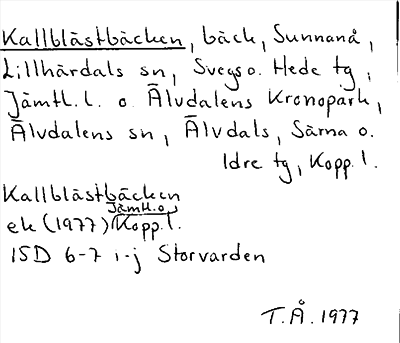 Kallblästbäcken, bäck, Sunnanå,
Lillhärdals sn, Svegs o. Hede tg,
Jämtl. l. o. Älvdalens Kronopark,
Älvdalens sn, Älvdals, Särna o.
Idre tg, Kopp. l.
Kallblästbäcken
Jämtl. o.
ek (1977) Kopp. l.
15D 6-7 i-j Storvarden
T.Å. 1977